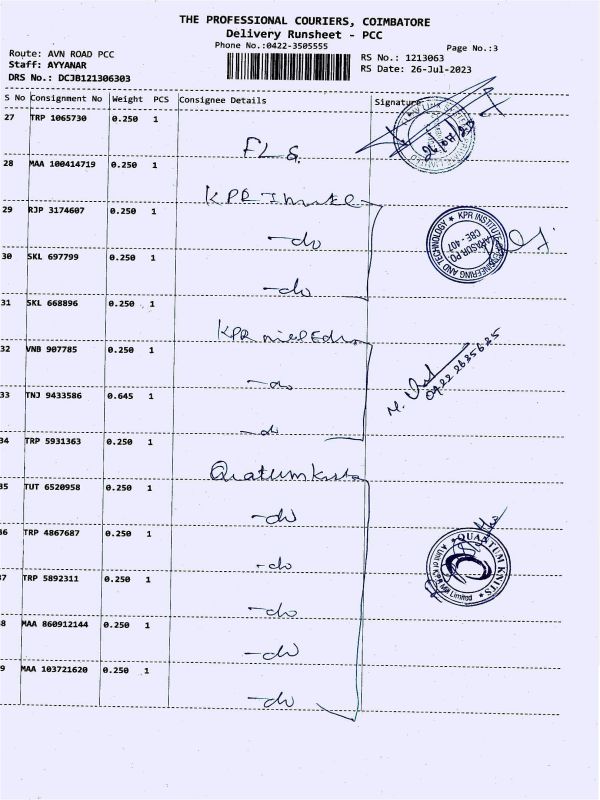 THE PROFESSIONAL COURIERS, COIMBATORE
Delivery Runsheet - PCC
Phone No.:0422-3505555
Page No.:3
Route: AVN ROAD PCC
Staff: AYYANAR
DRS No.: DCJB121306303
RS No.: 1213063
RS Date: 26-Jul-2023
S No Consignment No Weight PCS Consignee Details Signature
27 TRP 1065730 0.250 1
FLG
28 MAA 100414719 0.250 1
KPR
29 RJP 3174607 0.250 1
-do
30 SKL 697799 0.250 1
-do
31 SKL 668896 0.250 1
KPR mill
32 VNB 907785 0.250 1
-do
33 TNJ 9433586 0.645 1
-do
34 TRP 5931363 0.250 1
Quatum Knits
35 TUT 6520958 0.250 1
-do
36 TRP 4867687 0.250 1
-do
37 TRP 5892311 0.250 1
-do
38 MAA 860912144 0.250 1
-do
39 MAA 103721620 0.250 1
-do
KPR INSTITUTE OF ENGINEERING AND TECHNOLOGY
CBE - 407
M.
0422 2635625
QUANTUM KNITS
A Unit of KPR Mill Limited